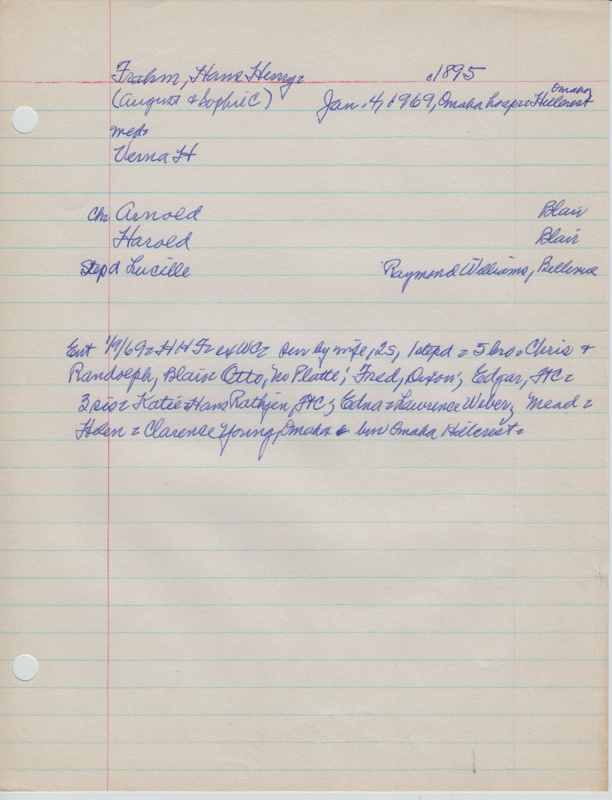 Frahm, Hans Henry= c1895
(August & Sophie C) Jan. 4, 1969, Omaha hosp= Omaha Hillcrest
med=
Verna H
Ch= Arnold Blair
Harold Blair
Stepd Lucille Raymond Williams, Bellevue
Ent 1/9/69= H H F= ex WC= sur by wife, 2s, 1 stepd = 5 bro= Chris &
Randolph, Blair= Otto, no Platte; Fred, Dixon; Edgar, FtC=
3 sis= Katie= Hans Rathjen, FtC; Edna= Lawrence Weber, Mead=
Helen= Clarence Young, Omaha & bur Omaha Hillcrest=